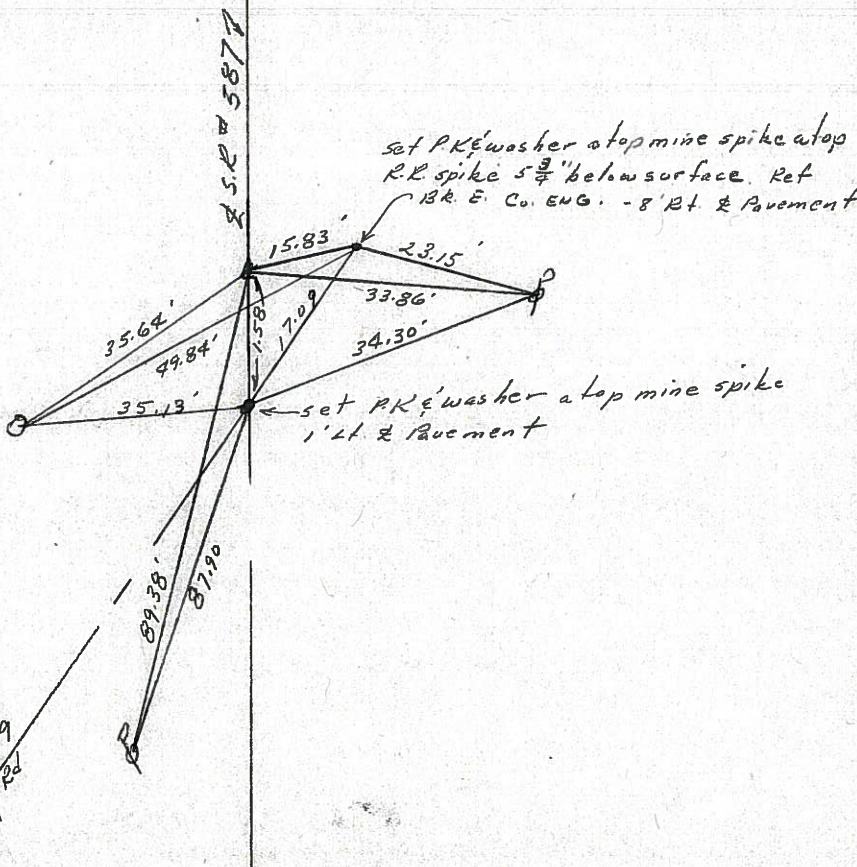 ℄ SR # 587
set P.K & washer atop mine spike atop
R.R. spike 5 3/4" below surface. Ref
BK. E. Co. ENG. - 8' Rt. ℄ Pavement
15.83'
23.15'
33.86'
35.64'
49.84'
1.58'
17.09
34.30'
35.13'
set P.K & washer atop mine spike
1' Lt. ℄ Pavement
89.38'
87.90
P
P
9
Rd